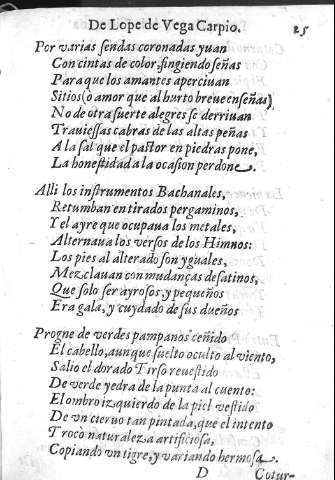 De Lope de Vega Carpio. 25
Por varias sendas coronadas yuan
Con cintas de color, fingiendo señas
Para que los amantes aperciuan
Sitios (ò amor que al hurto breue enseñas)
No de otra suerte alegres se derriuan
Trauiessas cabras de las altas peñas
A la sal que el pastor en piedras pone,
La honestidad a la ocasion perdone.
Alli los instrumentos Bachanales,
Retumban en tirados pergaminos,
Y el ayre que ocupaua los metales,
Alternaua los versos de los Himnos:
Los pies al alterado son yguales,
Mezclauan con mudanças desatinos,
Que solo ser ayrosos, y pequeños
Era gala, y cuydado de sus dueños
Progne de verdes pampanos ceñido
El cabello, aunque suelto oculto al viento,
Salio el dorado Tirso reuestido
De verde yedra de la punta al cuento:
El ombro izquierdo de la piel vestido
De vn cieruo tan pintada, que el intento
Troco naturaleza artificiosa,
Copiando vn tigre, y variando hermosa.
D Cotur-